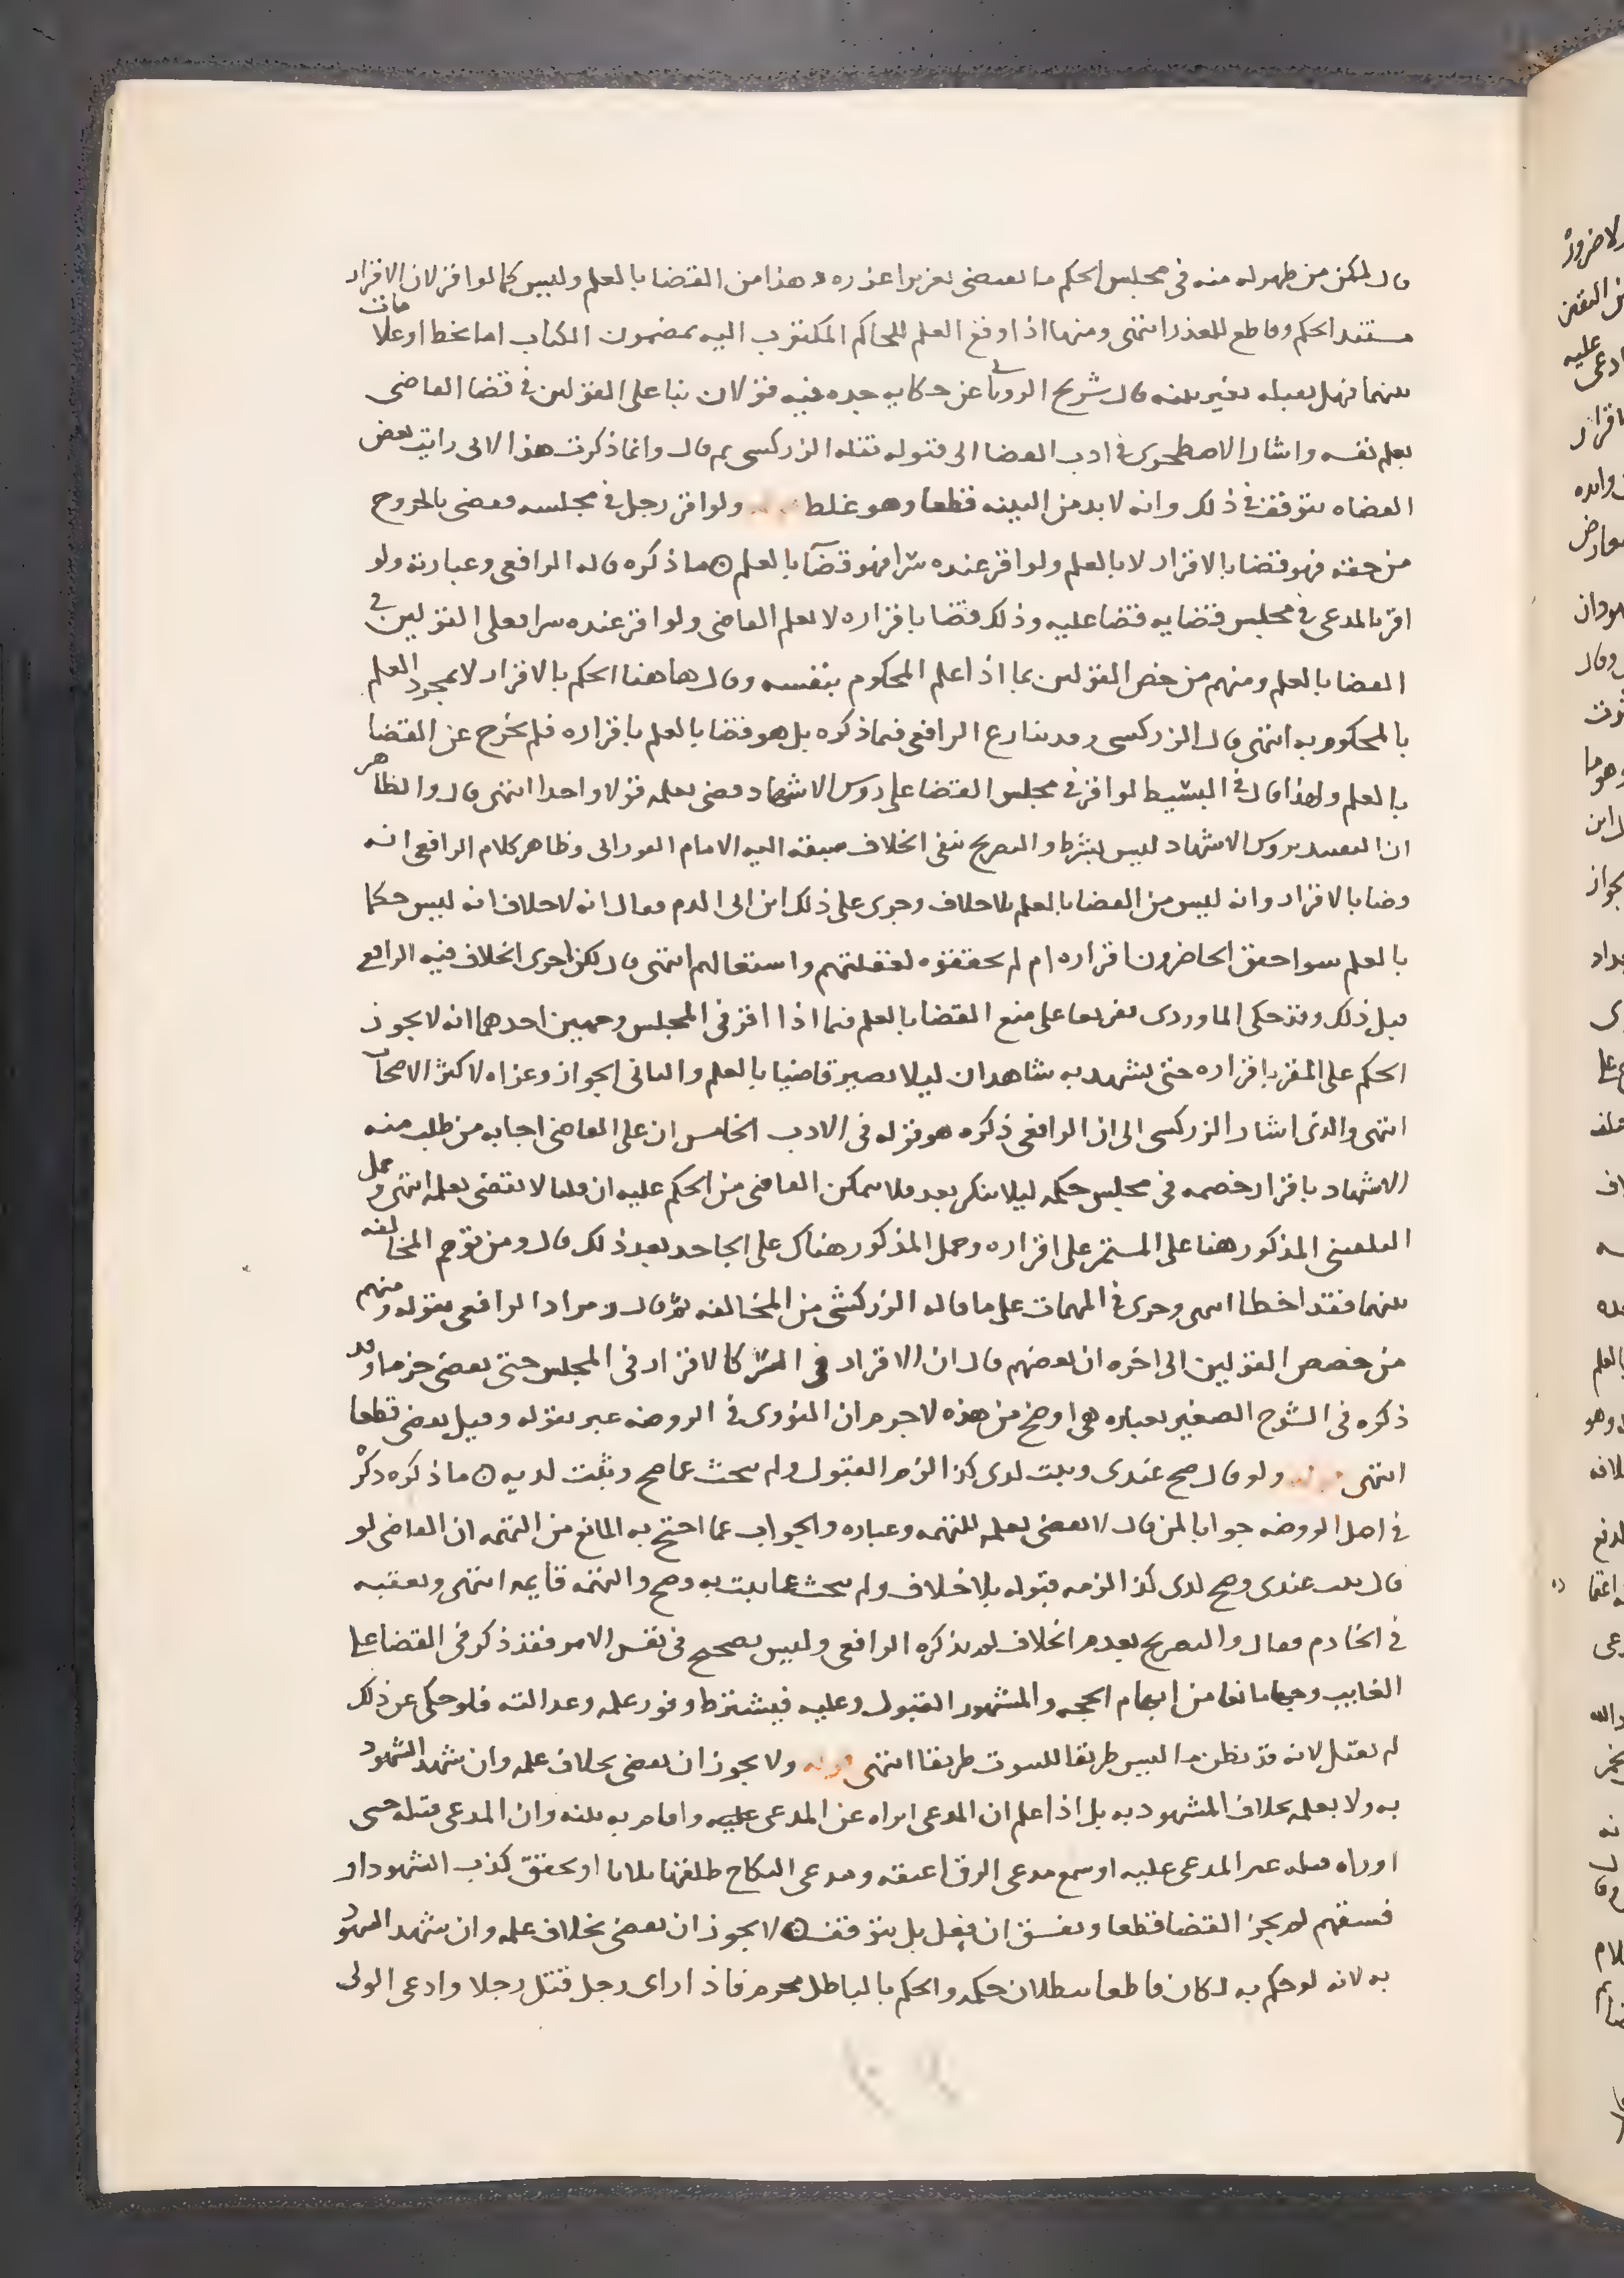 قال لمكن من ظهوله منه في مجلس الحكم ما يقتضي تعزيرا عزره و هذا من القضا بالعلم وليس كما لو اقر لان الاقرار
مستند الحكم وقاطع للعذر انتهى ومنها اذا وقع العلم للحاكم المكتوب اليه بمضمون الكتاب اما بخط او علامات
بينهما فهل يقبله بغير بينه قال شريح الروياني عن حكايه جده فيه قولان بنا على القولين في قضا القاضي
بعلم نفسه واشار الاصطخري في ادب القضا الى قبوله نقله الزركسي ثم قال وانما ذكرت هذا لاني رايت بعض
القضاه يتوقف في ذلك وانه لا بد من البينه قطعا وهو غلط ولو اقر رجل في مجلسه فقضى بالخروج
من حقه فهو قضا بالاقرار لا بالعلم ولو اقر عنده سرا فهو قضا بالعلم ما ذكره قاله الرافعي وعبارته ولو
اقر بالمدعى في مجلس قضايه قضا عليه وذلك قضا باقراره لا بعلم القاضي ولو اقر عنده سرا فعلى القولين في
القضا بالعلم ومنهم من خص القولين بما اذا علم المحكوم بنفسه وقال هاهنا الحكم بالاقرار لا بمجرد العلم
بالمحكوم به انتهى قال الزركسي وقد ينازع الرافعي فيما ذكره بل هو قضا بالعلم باقراره فلم يخرج عن القضا
بالعلم ولهذا قال في البسيط لو اقر في مجلس القضا على روس الاشهاد قضى بعلمه قولا واحدا انتهى قال والظاهر
ان التقييد بروس الاشهاد ليس بشرط والتصريح بنفي الخلاف سبقه اليه الامام الفوراني وظاهر كلام الرافعي انه
قضا بالاقرار وانه ليس من القضا بالعلم بلا خلاف وجرى على ذلك ابن ابي الدم فقال انه لا خلاف انه ليس حكما
بالعلم سوا حقق الحاضرون اقراره ام لم يحققوه لغفلتهم واشتغالهم انتهى قال لكن اجرى الخلاف فيه الرافعي
قبل ذلك وقد حكى الماوردي تفريعا على منع القضا بالعلم فيما اذا اقر في المجلس وجهين احدهما انه لا يجوز
الحكم على المقر باقراره حتى يشهد به شاهدان ليلا يصير قاضيا بالعلم والثاني الجواز وعزاه لاكثر الاصحاب
انتهى والذي اشار الزركسي الى ان الرافعي ذكره هو قوله في الادب الخامس ان على القاضي اجابه من طلب منه
الاشهاد باقرار خصمه في مجلس حكمه ليلا ينكر بعد فلا يمكن القاضي من الحكم عليه ان قلنا لا يقضي بعلمه انتهى وحمل
البلقيني المذكور هنا على المستمر على اقراره وحمل المذكور هناك على الجاحد بعد ذلك قال ومن توهم المخالفه
بينهما فقد اخطا انتهى وجرى في المهمات على ما قاله الزركشي من المخالفه ثم قال ومراد الرافعي بقوله ومنهم
من خصص القولين الى اخره ان بعضهم قال ان الاقرار في السر كالاقرار في المجلس حتى يقضي جزما وقد
ذكره في الشرح الصغير بعباره هي اوضح من هذه لا جرم ان النووي في الروضه عبر بقوله وقيل يقضي قطعا
انتهى ولو قال صح عندي وثبت لدي كذا لزم القبول ولم يبحث عما صح وثبت لديه ما ذكره ذكر
في اصل الروضه جوابا لمن قال لا يقضي بعلمه للتهمه وعباره والجواب عما احتج به المانع من التهمه ان القاضي لو
قال ثبت عندي وصح لدي كذا لزمه قبوله بلا خلاف ولم يبحث عما ثبت به وصح والتهمه قايمه انتهى وتعقبه
في الخادم فقال والتصريح بعدم الخلاف لم يذكره الرافعي وليس بصحيح في نفس الامر فقد ذكر في القضا على
الغايب وجها مانعا من ابهام الحجه والمشهور القبول وعليه فيشترط وفور علمه وعدالته فلو حكى عن ذلك
لم يقبل لانه قد يظن ما ليس طريقا للثبوت طريقا انتهى قوله ولا يجوز ان يقضي بخلاف علمه وان شهد الشهود
به ولا بعلمه بخلاف المشهود به بل اذا علم ان المدعي ابراه عن المدعى عليه واقام به بينه وان المدعى قتله حي
او راه قتله غير المدعى عليه او سمع مدعي الرق اعتقه ومدعي النكاح طلقها ثلاثا او تحقق كذب الشهود او
فسقهم لم يجز القضا قطعا ويفسق ان فعل بل يتوقف لا يجوز ان يقضي بخلاف علمه وان شهد الشهود
به لانه لو حكم به لكان قاطعا ببطلان حكمه والحكم بالباطل محرم فاذا راى رجل قتل رجلا وادعى الولي